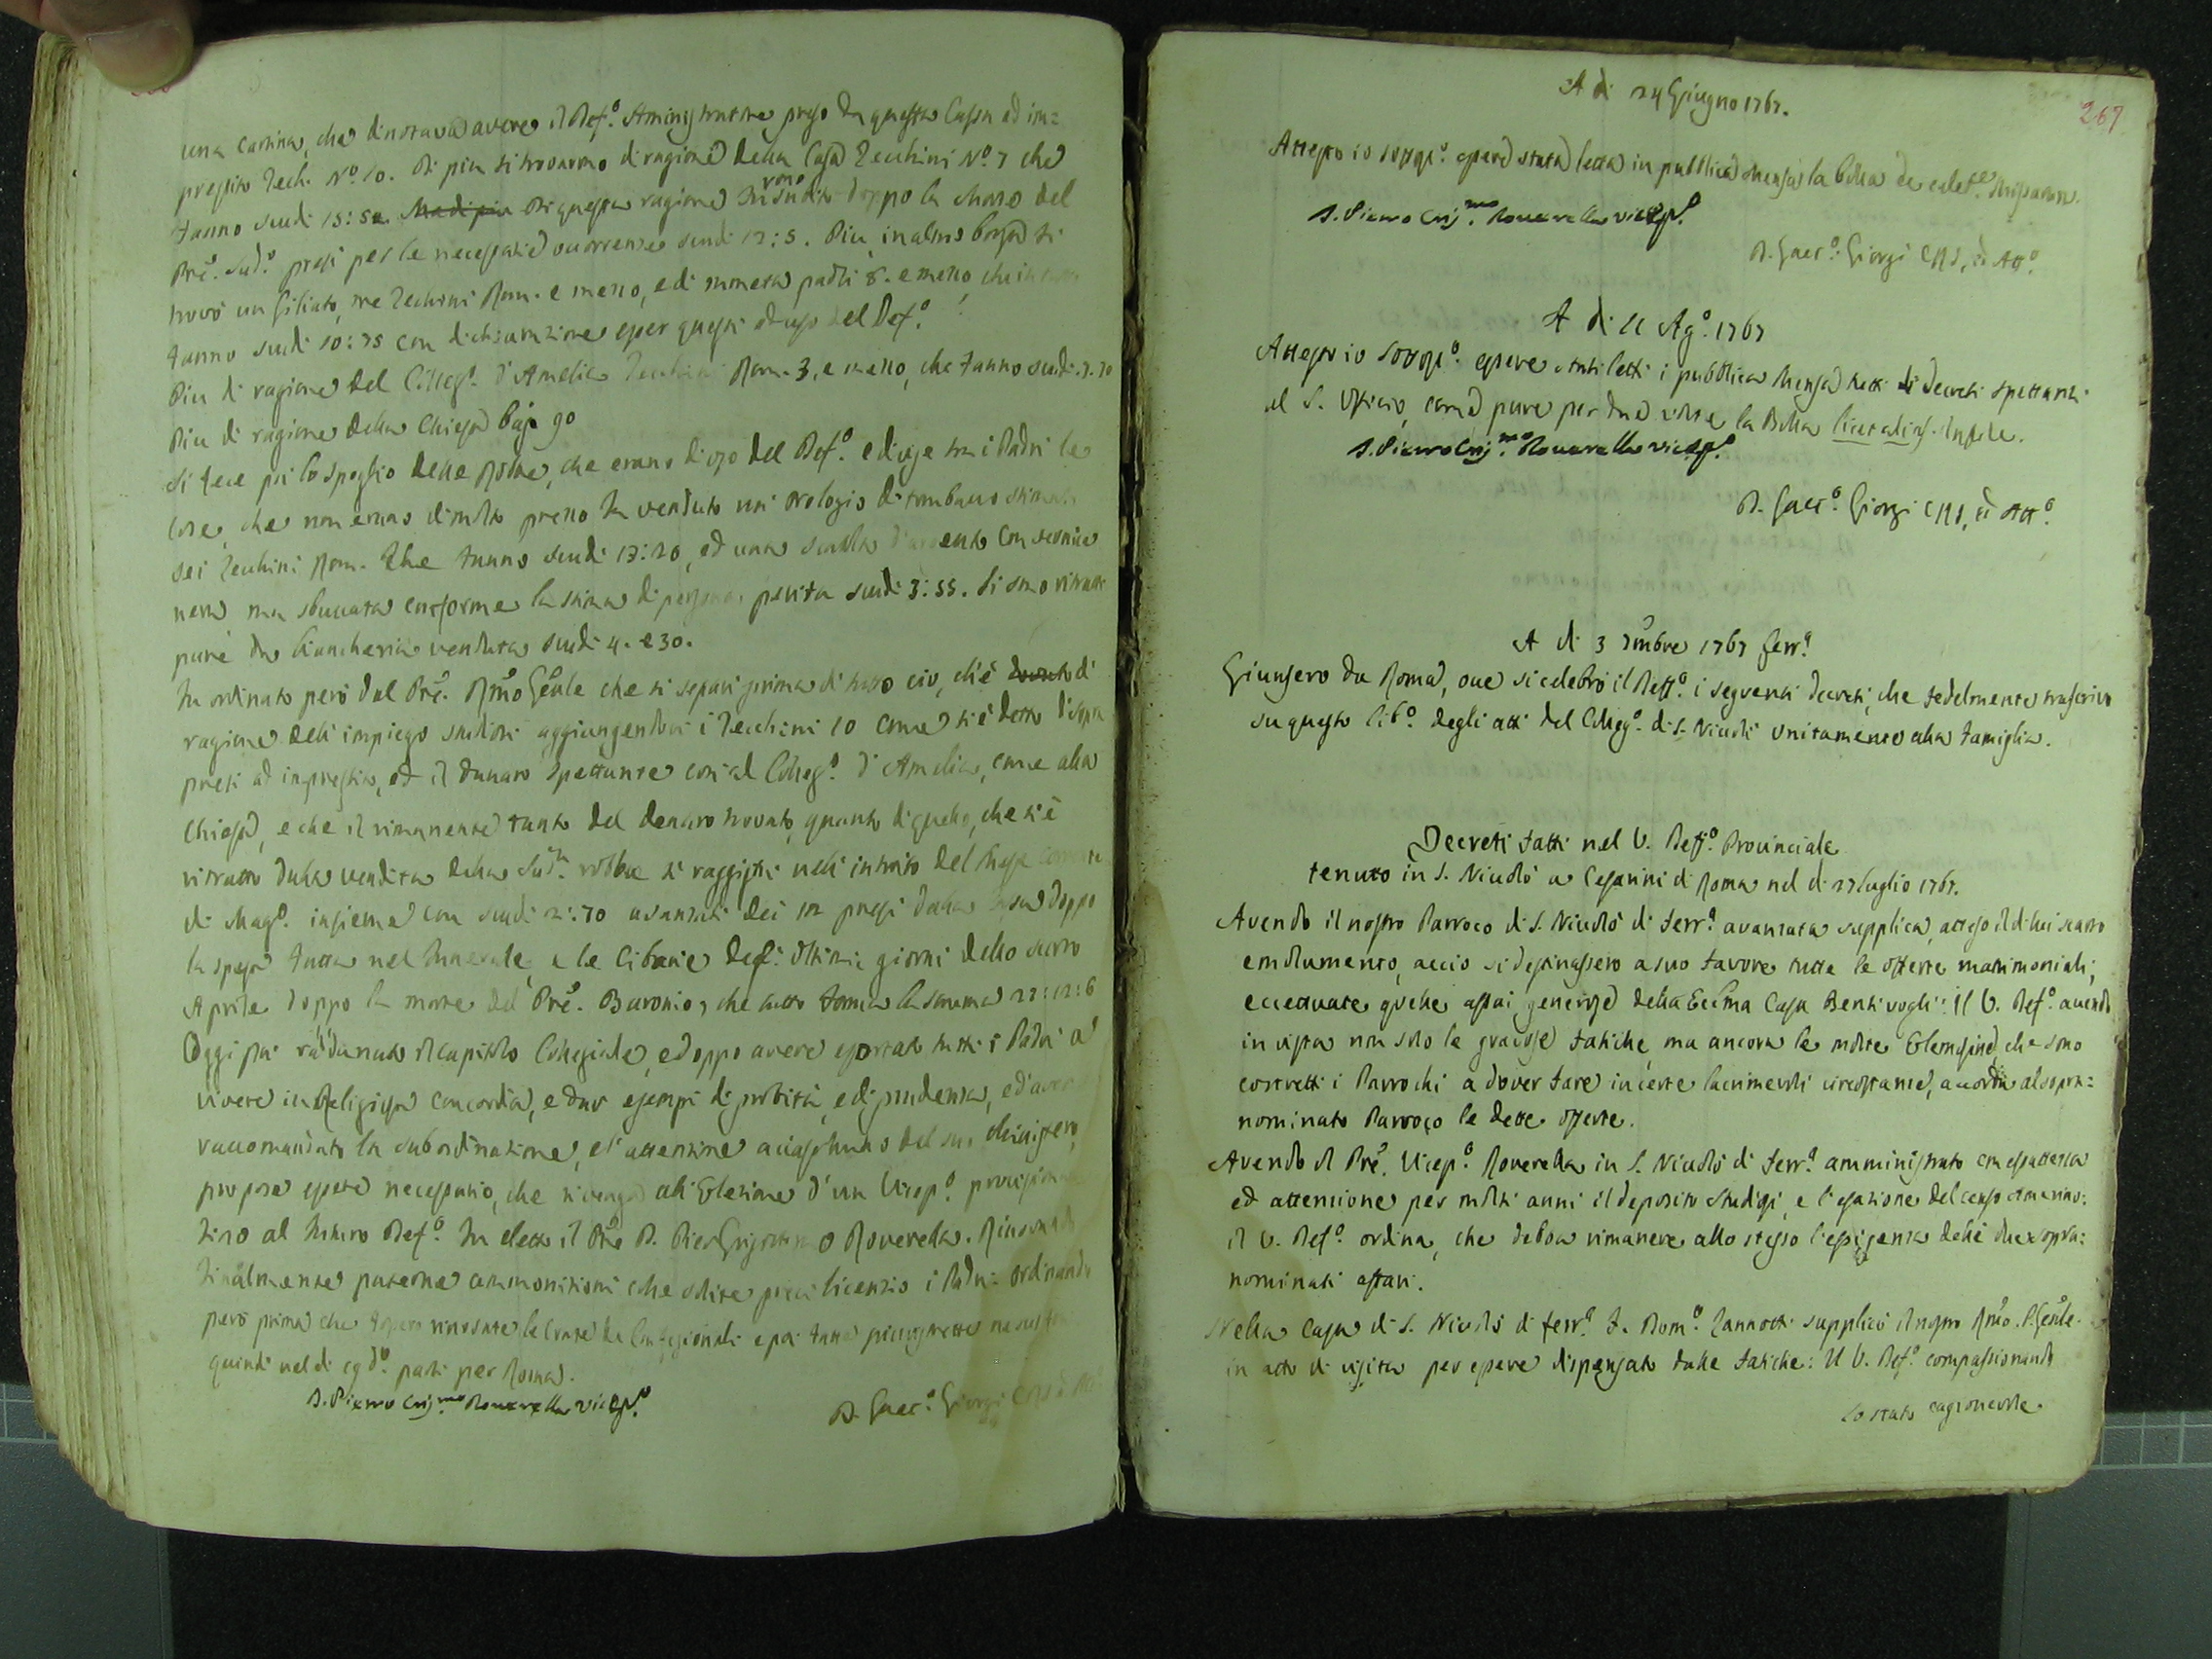 una cartina, che dinotava avere il Def.º Amministratore preso da questa Cassa ad im=
prestito Zech. Nº. 10. Di piu si trovarono di ragione della Casa Zecchini Nº. 7 che
fanno scudi 15:
Di questa ragione doppo la Morte del
Pre. Sud.º presi per le necessarie occorrenze scudi 12:5. Piu in altra borsa si
trovò un Giliato, tre Zecchini Rom. e mezzo, e di moneta paoli 8. e mezzo che in
fanno scudi 10:75 con dichiarazione esser questi ad uso del Def.º
Piu di ragione del Colleg.º d'Amelia Zecchini Rom. 3, e mezzo, che fanno scudi 7.
Piu di ragione della Chiesa baj. 90
Si fece poi lo spoglio delle Robbe, che erano di uso del Def.º e divise tra i Padri le
cose, che non erano di molto prezzo fu venduto un orologio di tombacco
sei Zecchini Rom. che fanno scudi 12:30, ed una scatola d'argento con
nera ma sbucata conforme la stima di persona perita scudi 3:55. Si sono ritratti
pure da biancheria venduta scudi 4. e 30.
Fu ordinato però dal Pre. Rmo Gente che si separi prima di tutto cio, ch'è di
ragione dell'impiego aggiungendovi i Zecchini 10 come si è detto di sopra
presi ad imprestito, ed il danaro spettante così al Colleg.º d'Amelia, come alla
Chiesa, e che il rimanente tanto del denaro trovato, quanto di quello, che si è
ritratto dalla vendita della Sud.ta robba si raggisti nell'introito del Mese corrente
di Mag.º insieme con scudi 21:70 avanzati dei presi dalla Cassa doppo
la spesa fatta nel funerale, e le Cibarie degl'ultimi giorni dello scorso
Aprile doppo la morte del Pre. Baronio, che tutto forma la somma 22:12:6
Oggi poi radunato il capitolo Collegiale, e doppo avere esortato tutti i Padri a
vivere in Religiosa concordia, e dar esempi di probità, e di prudenza, ed aver
raccomandato la subordinazione, e l'attenzione a ciascheduno del suo Ministero,
propose essere necessario, che si venga all'Elezione d'un Vicep.º provisionale
sino al futuro Def.º Fu eletto il Pre D. Pier Roverella.
finalmente paterne ammonizioni colle solite preci licenziò i Padri ordinando
però prima che
quindi nel dì partì per Roma.
D. Pietro Cris.mo Rouerella Vicep.º
D. Gaet.º Giorgi
267
A dì 24 Giugno 1767.
Attesto io sottos.º essere stata letta in pubblica Mensa la bolla de celeb.e Missarum.
D. Pietro Cris.mo Rouerella Vicep.º
D. Gaet.º Giorgi C.R.S. d'Att.º
A di 11 Ag.º 1767
Attesto io sottos.º essere stati letti i pubblica Mensa tutti di Decreti spettanti
al S. Officio, come pure per due volte la Bolla
D. Pietro Cris.mo Rouerella Vicep.º
D. Gaet.º Giorgi C.R.S. d'Att.º
A di 3 7mbre 1767 Ferr.a
Giunsero da Roma, ove si celebrò il Deff.º i seguenti Decreti, che fedelmente trascrivo
su questo lib.º degli atti del Colleg.º di S. Nicolò unitamente alla famiglia.
Decreti fatti nel V. Deff.º Provinciale
tenuto in S. Nicolò a Cesarini di Roma nel dì 27 luglio 1767.
Avendo il nostro Parroco di S. Nicolò di Ferr.a avanzata supplica, atteso il di lui scarso
emolumento, accio si destinassero a suo favore tutte le offerte matrimoniali,
eccettuate quelle assai generose della Eccma Casa Bentivogli: Il V. Def.º avendo
in vista non solo le gravose fatiche ma ancora le molte Elemosine, che sono
costretti i Parrochi a dover fare in certe lacrimevoli circostanze, accorda al sopra=
nominato Parroco le dette offerte.
Avendo il Pre. Vicep.º Roverella in S. Nicolò di Ferr.a amministrato con esattezza
ed attenzione per molti anni il deposito Studiosi, e l'esazione del censo Amerino:
il V. Def.º ordina, che debba rimanere allo stesso l'esigenza delli due sopra=
nominati affari.
Nella Casa di S. Nicolò di Ferr.a F. Dom.º Zannotti supplicò il nostro Rmo. P. Gente.
in atto di visita per essere dispensato dalle fatiche: Il V. Def.º compassionando
lo stato cagionevole